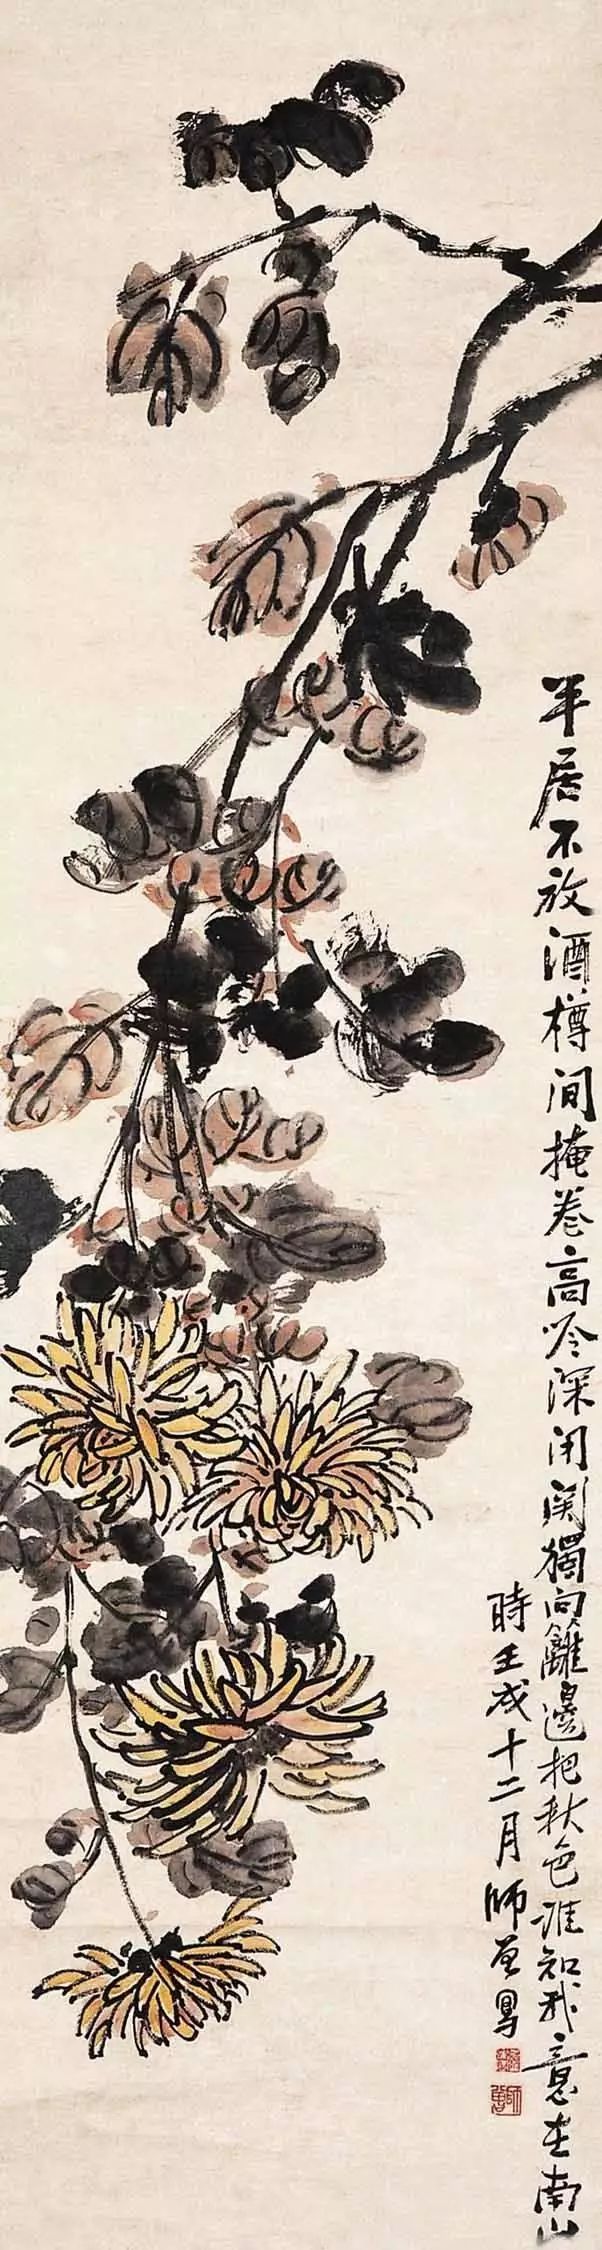 平居不放酒樽间掩卷高吟深闭關獨向籬邊把秋色谁知我意在南山
時壬戌十二月師曾寫
師曾